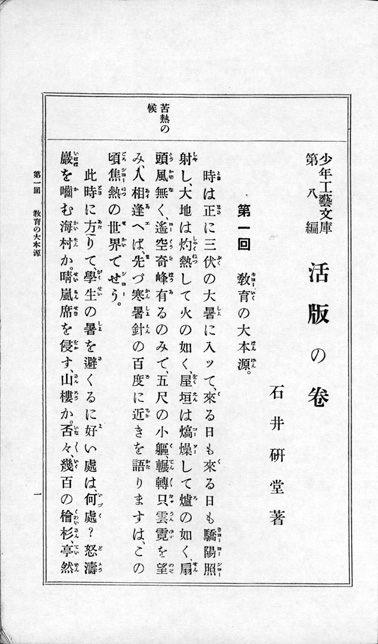 少年工藝文庫
第八編
活版の卷
石井研堂著
第一回 敎育の大本源。
苦熱の
候
時は正に三伏の大暑に入ッて、來る日も來る日も驕陽照
射し、大地は灼熱して火の如く、屋垣は熇燥して爐の如く、扇
頭風無く、遙空奇峰有るのみて、五尺の小軀輾轉只雲霓を望
み、人相逢へば、先づ寒暑針の百度に近きを語りますは、この
頃焦熱の世界でせう。
此時に方りて學生の暑を避くるに好い處は、何處?怒濤
巖を嚙む海村か。晴嵐席を侵す、山樓か。否々、幾百の檜杉、亭然
第一回 敎育の大本源
一